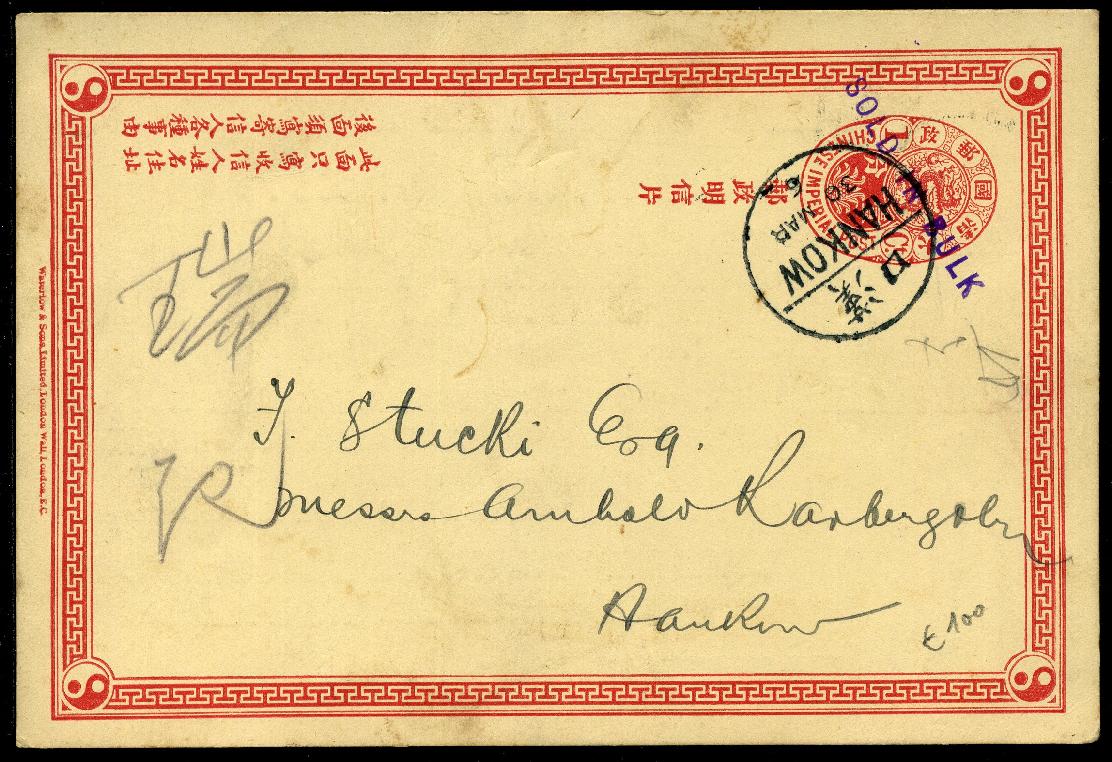 SOLD IN BULK
大清國郵政
CHINESE IMPERIAL POST
1
郵政明信片
此面只寫收信人姓名住址
後面須寫寄信人各種事由
HANKOW
30 MAR
6
D
漢口
瑞記
J. Stucki Esq.
messrs Arnhold Karberg & Co
Hankow
€ 100
Waterlow & Sons Limited, London Wall, London, E.C.